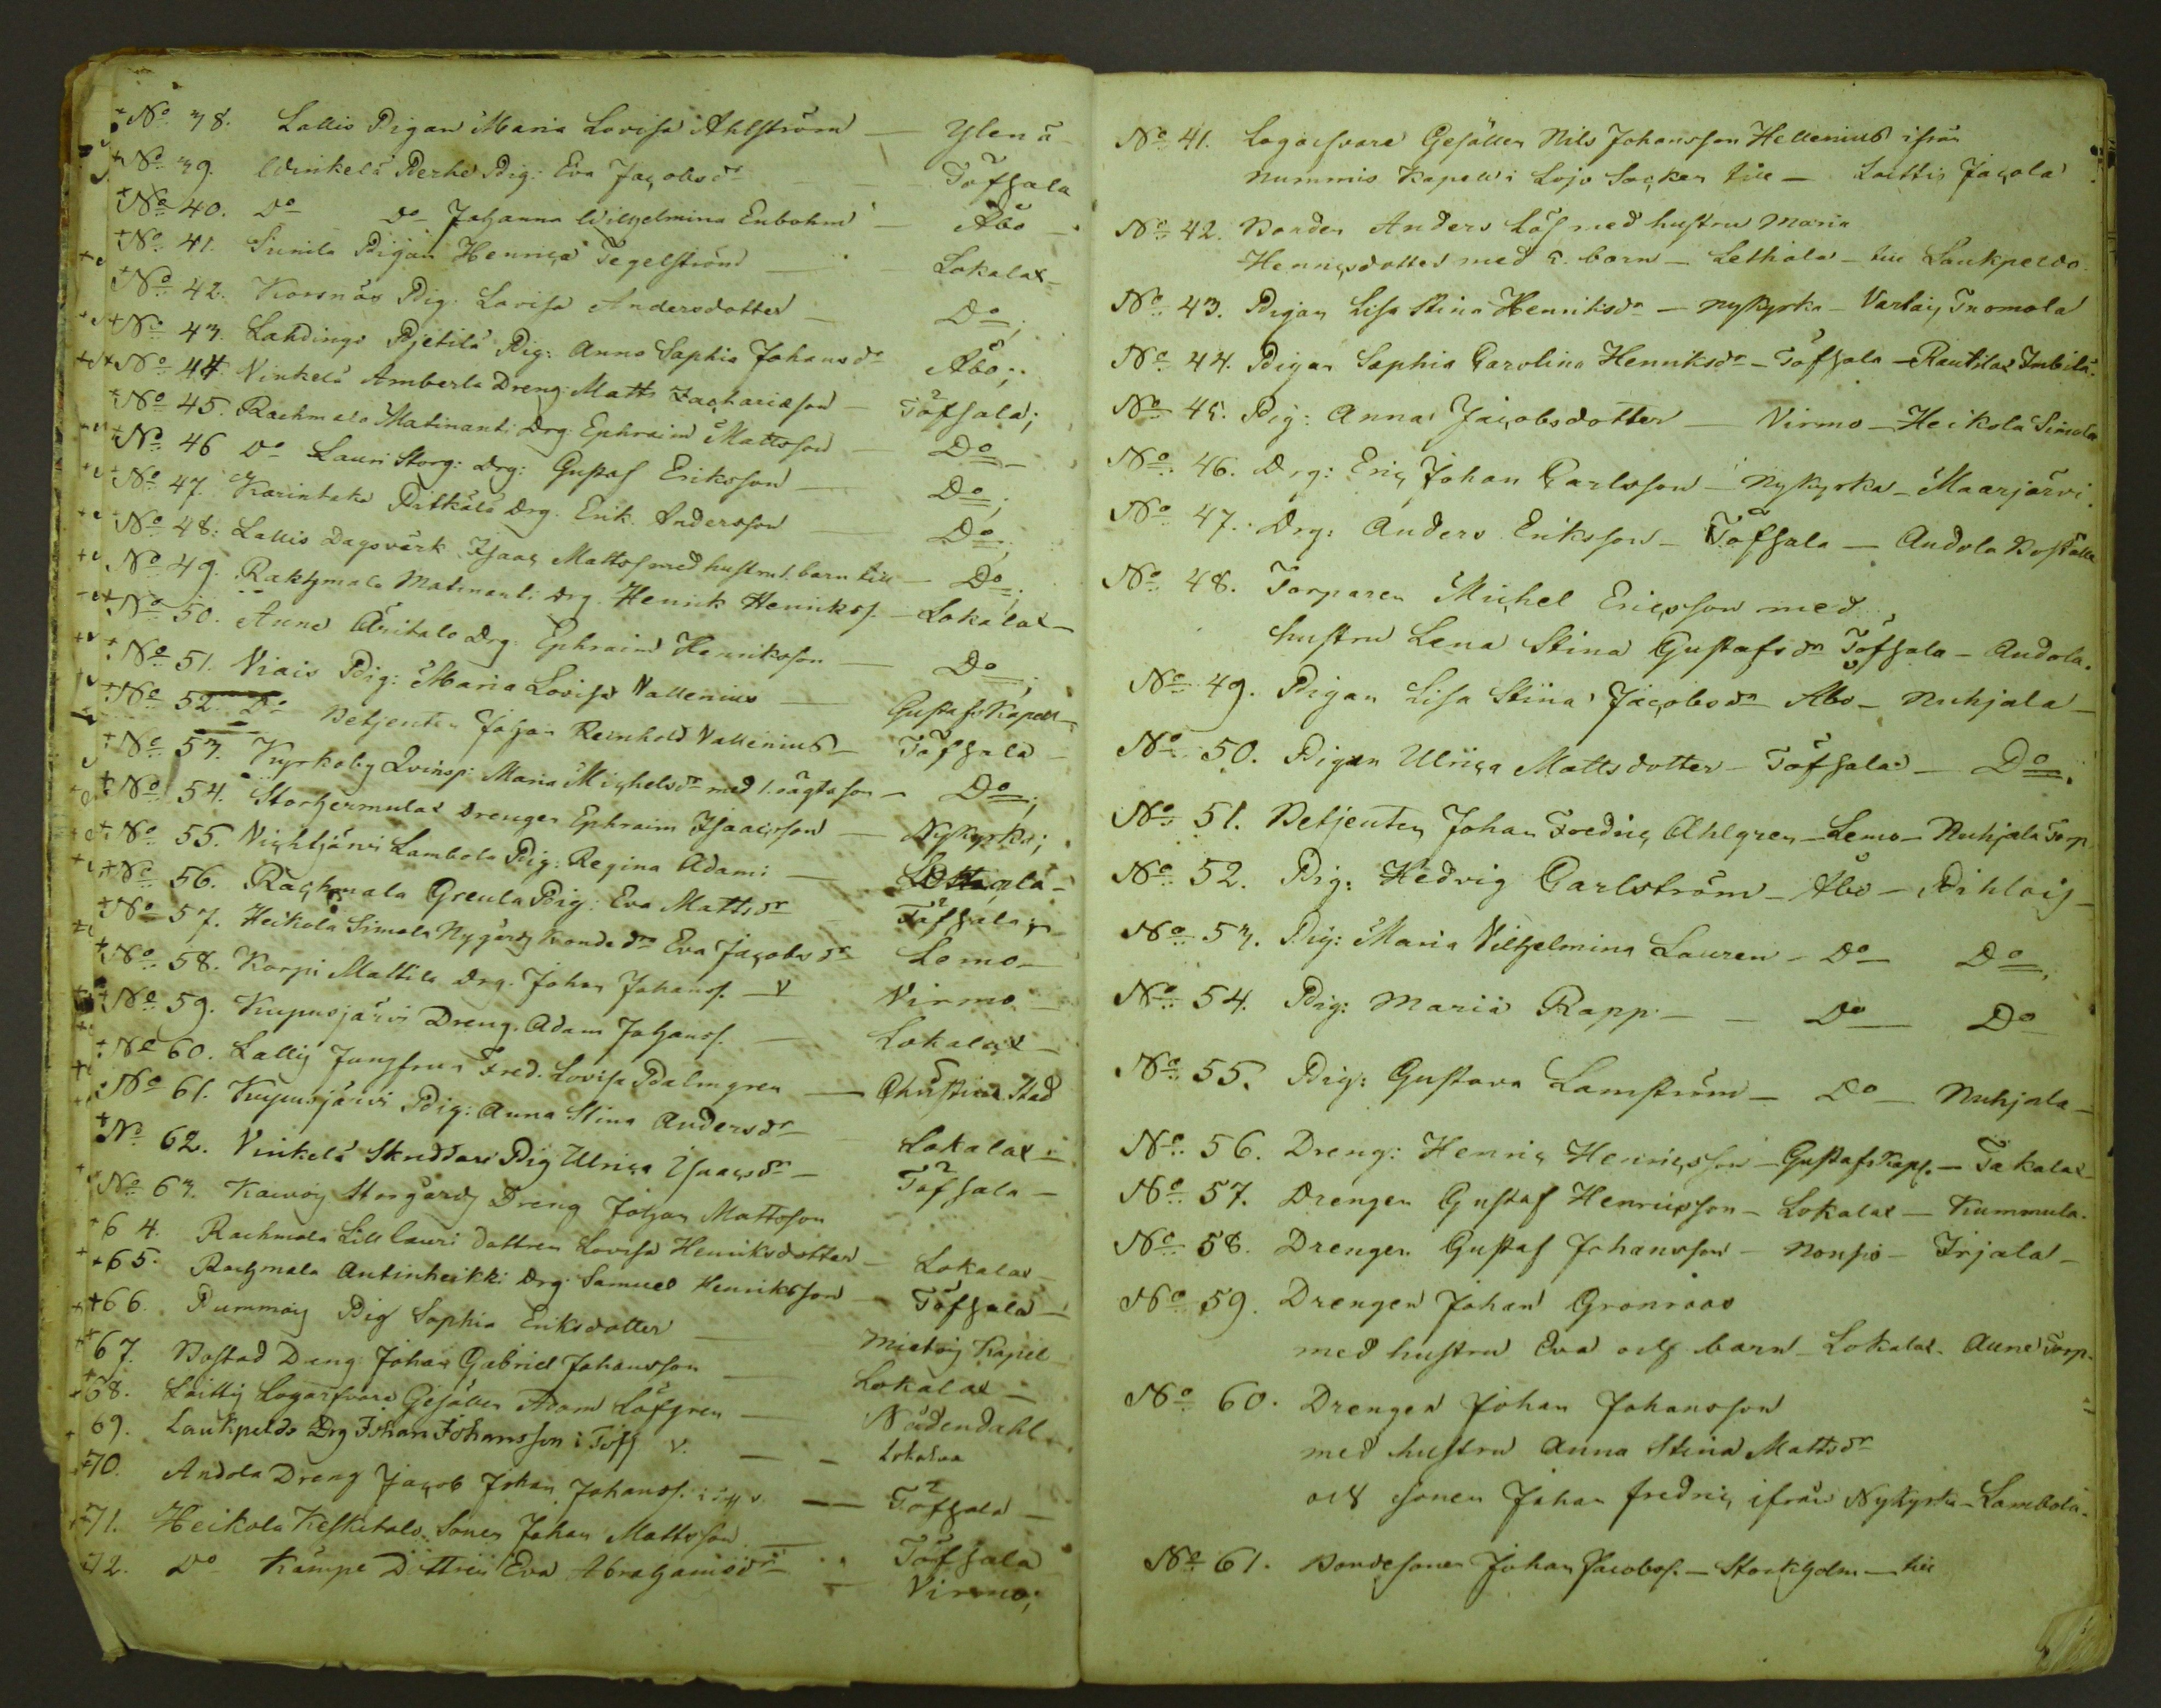 No 38. Lallis Pigan Maria Lovisa Ahlström — Ylenä
No 39. Winkelä Perhe Pig: Eva Jacobsdr Töfsala
No 40. Do Do Johanna Wilhelmina Enbohm — Åbo
No 41. Sunila Pigan Henrica Tegelström — Lokalax
No 42. Korsnäs Pig: Lovisa Andersdotter — Do;
No 43. Lahdingo Pjetilä Pig: Anna Sophia Johansdr Åbo;
No 44 Vinkelä Amberla Dreng: Matts Zachariason — Töfsala;
No 45. Rachmala Matinanti Drg Ephraim Mattsson Do
No 46 Do Lauri Storg: Drg: Gustaf Eriksson — Do;
No 47. Karintaka Pitkälä Drg. Erik Andersson — Do;
No 48: Lallis Dagsvärk Isaac Mattss med hustru 1. barn till — Do;
No 49. Rakhmala Matinanti Drg. Henrik Henrikss. — Lokalax
No 50. Aune Äritalo Drg: Ephraim Henriksson — Do;
No 51. Viais Pig: Maria Lovisa Vallenius — Gustafs Kapell
No 52 Do Betjenten Johan Reinhold Vallenius — Töfsala
No 53. Kyrkoby Qvinsp: Maria Michelsdr med 1. oägta son — Do;
No 54. Storhermula Drengen Ephraim Isaacsson — Nykyrka;
No 55. Vighjärvi Lambola Pig: Regina Adami —
No 56. Rachmala Greula Pig: Eva Mattsdr Töfsala
No 57. Heikola Simola Nygårds Bonde dr Eva Jacobsdr Lemo
No 58. Korpi Mattila Drg. Johan Johanss. — v Virmo
No 59. Kupusjärvi Dreng. Adam Johanss. — Lokalax
No 60. Lallis Jungfrun Fred. Lovisa Palmgren — Christine Stad
No 61. Kupusjärvi Pig: Anna Stina Andersdr Lokalax
No 62. Vinkelä Skreddare Pig Ulrica Isaacsdr Töfsala
No 63. Kaivois Storgårds Dreng Johan Mattsson
64. Rachmala Lill lauri dottren Lovisa Henriksdotter — Lokalax
65. Rachmala Antinheikki Drg: Samuel Henriksson — Töfsala
66. Pummois Pig Sophia Eriksdotter — Mietois Kapell
67. Bostad Dreng Johan Gabriel Johansson — Lokalax
68. Laittis Logarfvare Gesällen Adam Löfgren — Nådendahl
69. Laukpeldo Drg Johan Johansson i Töfs v. — Lokalax
70. Andola Dreng Jacob Johan Johanss. — Töfsala
71. Heikola Keskitalo Sonen Johan Mattsson — Töfsala
72. Do Kämpe Dottren Eva Abrahamsdr — Virmo;
No 41. Logarfvare Gesällen Nils Johansson Hellenius ifrån
Nummis Kapell i Lojo Socken till — Laittis Jacola
No 42. Bonden Anders Löf med hustru Maria
Henricsdotter med 5. barn — Lethala — till Laukpeldo.
No 43. Pigan Lisa Stina Henriksdr — Nykyrka — Vartais Tuomola
No 44. Pigan Sophia Carolina Henriksdr — Töfsala — Rautila Inbilä.
No 45. Pig: Anna Jacobsdotter — Virmo — Heikola Simola
No 46. Drg: Eric Johan Carlsson — Nykyrka — Maarjärvi.
No 47. Drg: Anders Eriksson — Töfsala — Andola Boställe
No 48. Torparen Michel Ericsson med
hustru Lena Stina Gustafsdr Töfsala — Andola.
No 49. Pigan Lisa Stina Jacobsdr Åbo — Nuhjala —
No 50. Pigan Ulrica Mattsdotter — Töfsala — Do.
No 51. Betjenten Johan Fredric Ahlgren — Lemo — Nuhjala Torp.
No 52. Pig: Hedvig Carlström — Åbo — Pihlois —
No 53. Pig: Maria Vilhelmina Lauren — Do Do;
No 54. Pig: Maria Rapp — Do Do
No 55. Pig: Gustava Lamström — Do — Nuhjala —
No 56. Dreng: Henric Henricsson — Gustafs Kap. — Takala —
No 57. Drengen Gustaf Henricsson — Lokalax — Kummula.
No 58. Drengen Gustaf Johansson — Nousis — Irjala —
No 59. Drengen Johan Grönroos
med hustru Eva och barn — Lokalax. Aune Torp.
No 60. Drengen Johan Johansson
med hustru Anna Stina Mattsdr
och sonen Johan Fredric ifrån Nykyrka — Lambola.
No 61. Bondesonen Johan Jacobss. — Stockholm — till